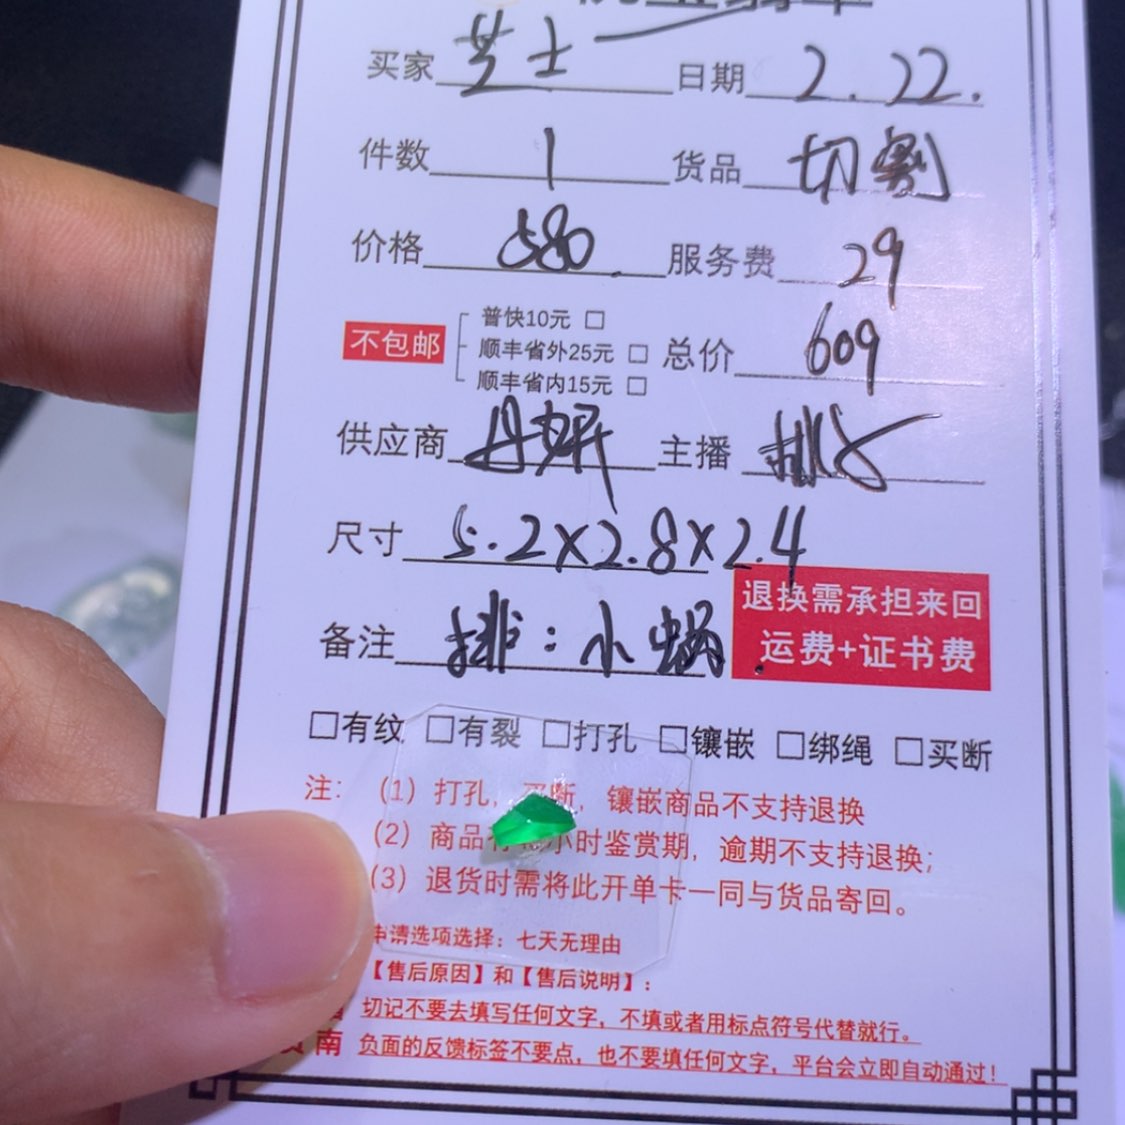 买家 芝士 日期 2.22.
件数 1 货品 切割
价格 580 服务费 29
不包邮 普快10元 □
顺丰省外25元 □ 总价 609
顺丰省内15元 □
供应商 主播
尺寸 5.2×2.8×2.4
退换需承担来回
备注 排:小蜗 运费+证书费
□有纹 □有裂 □打孔 □镶嵌 □绑绳 □买断
注: (1) 打孔, 买断, 镶嵌商品不支持退换
(2) 商品有 小时鉴赏期, 逾期不支持退换;
(3) 退货时需将此开单卡一同与货品寄回。
申请选项选择: 七天无理由
【售后原因】和【售后说明】:
切记不要去填写任何文字, 不填或者用标点符号代替就行。
南 负面的反馈标签不要点, 也不要填任何文字, 平台会立即自动通过!